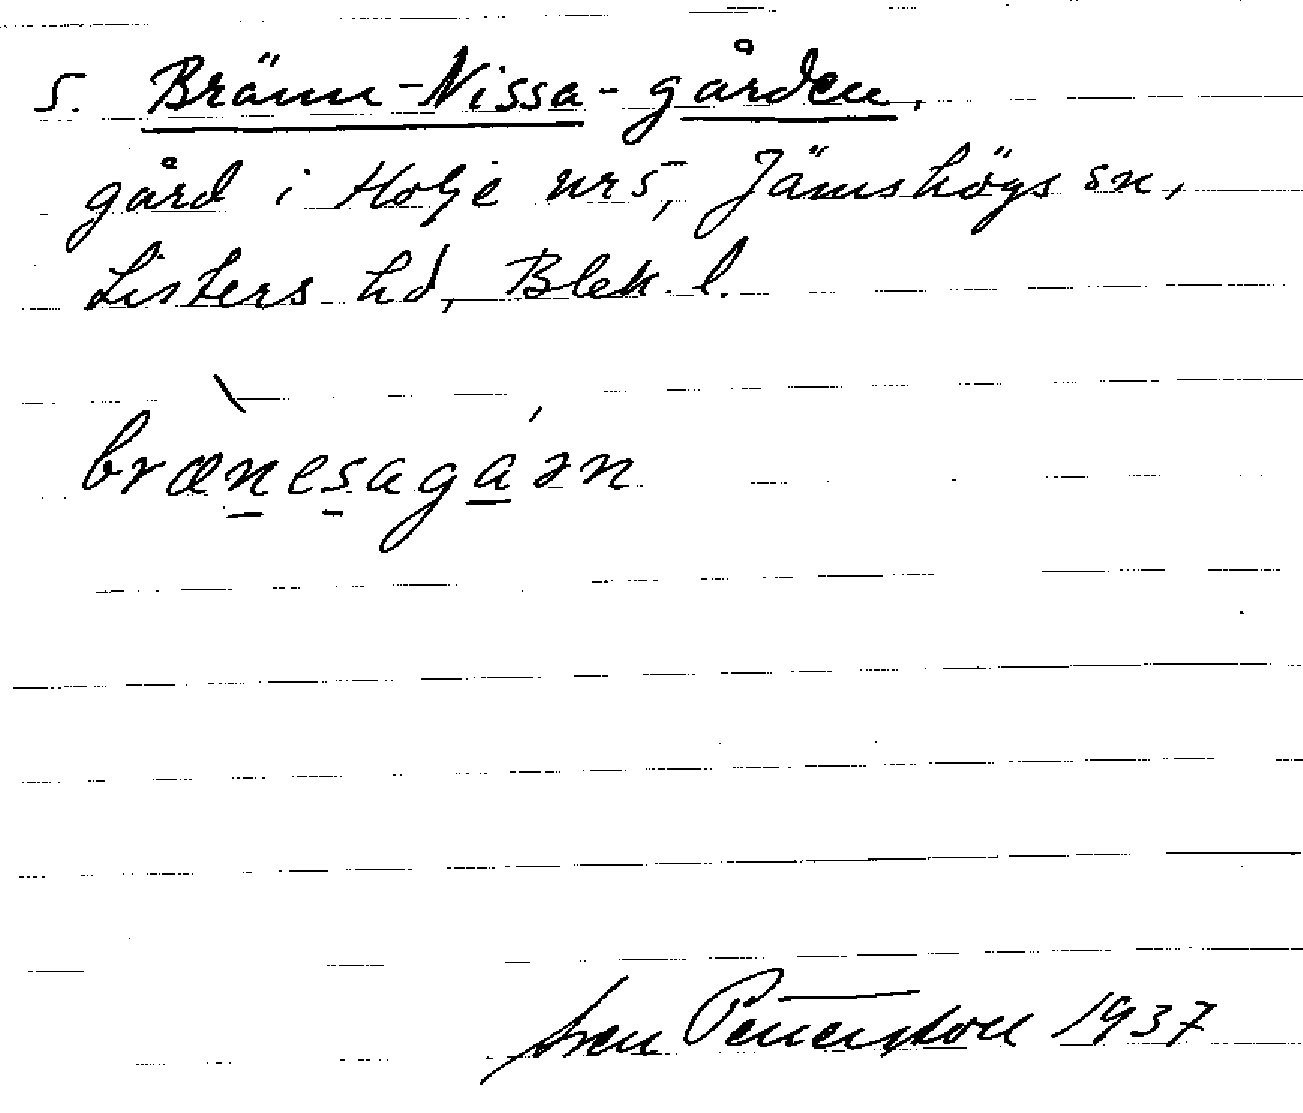 5. Bränn-Nissa-gården,
gård i Holje nr 5, Jämshögs sn,
Listers hd, Blek. l.
brænesagaən
Sven Pettersson 1937